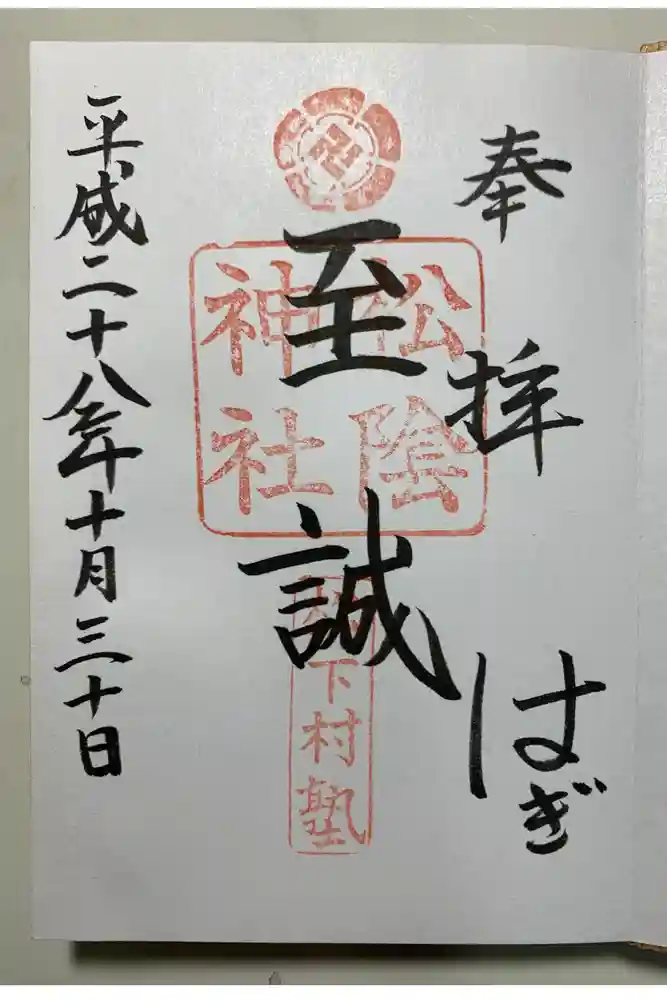 奉拝
はぎ
至誠
松陰
神社
松下村塾
平成二十八年十月三十日